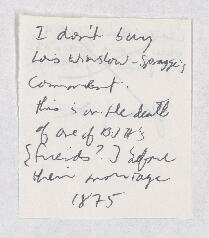 I don't buy
Lois Winslow-Spragge's
Comment.
this is on the death
of one of BJH's
{friends?} before
their marriage
1875